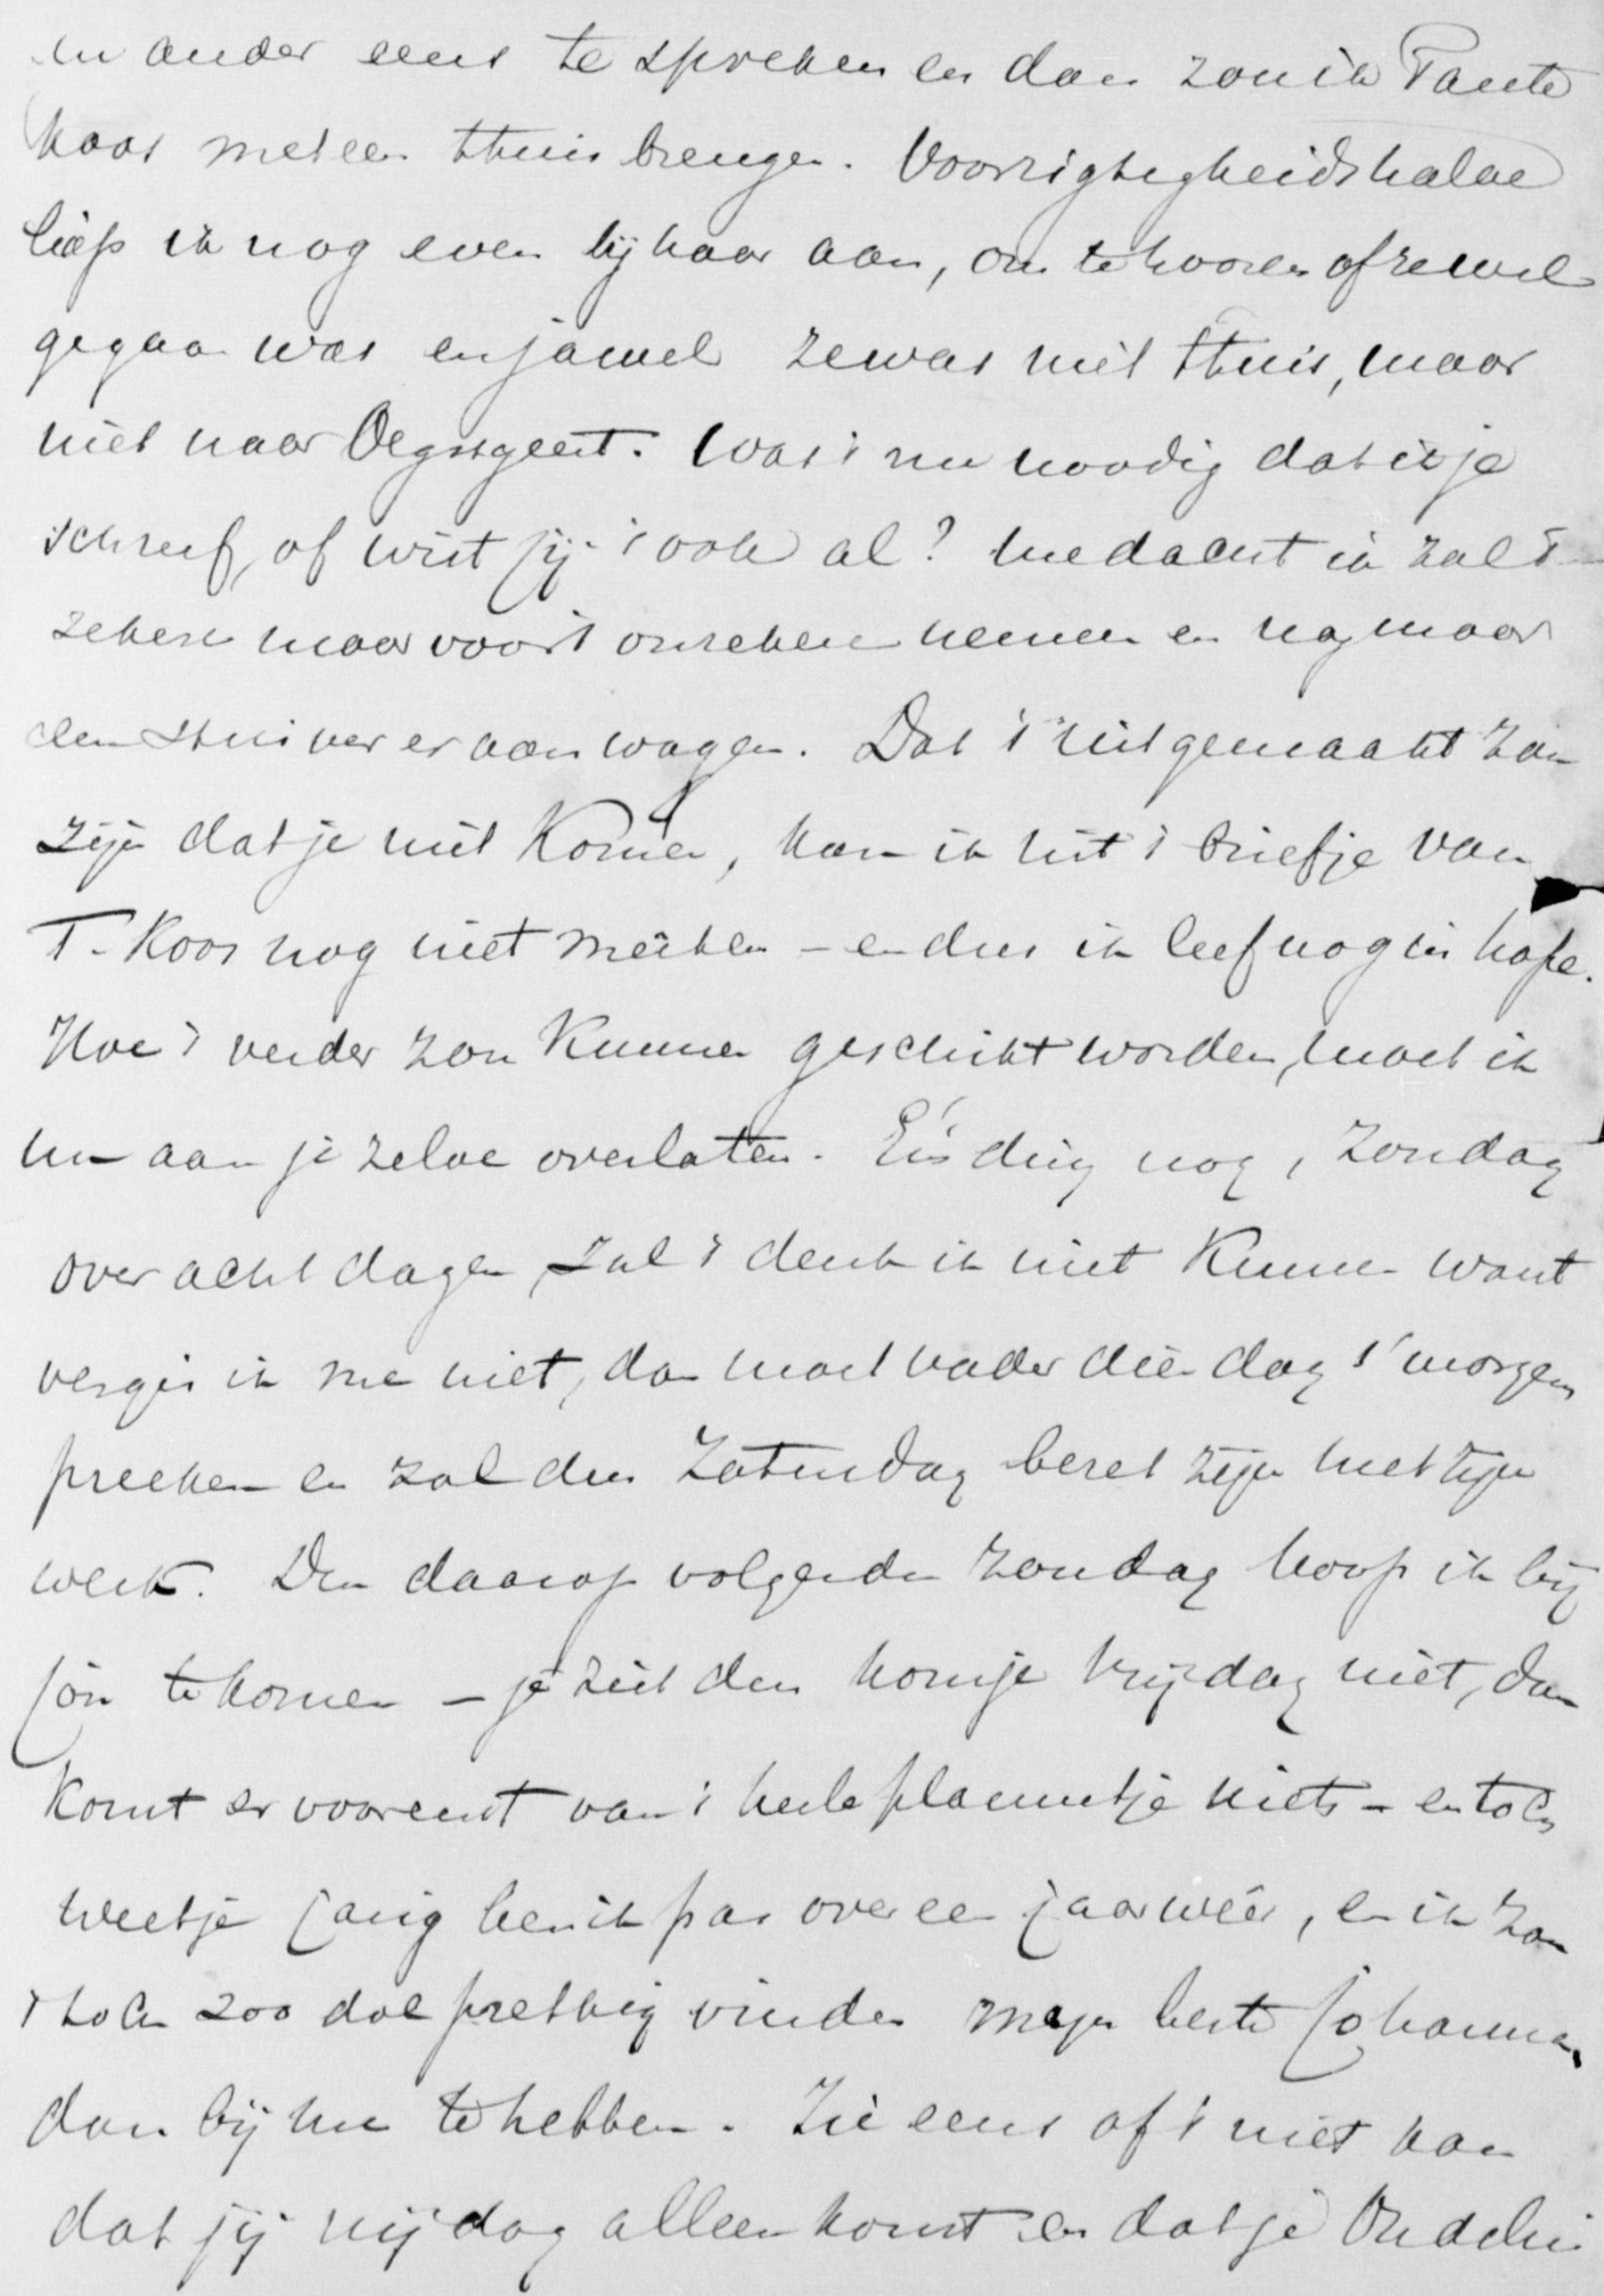 en ander eens te spreken en dan zou ik Tante
Koos meteen thuis brengen. Voorzigtigheidshalve
liep ik nog even bij haar aan, om te hooren of ze wel
gegaan was en jawel ze was niet thuis, maar
niet naar Oegstgeest. Was 't nu noodig dat ik je
schreef, of wist jij 't ook al? me dacht ik zal 't
zekere maar voor 't onzekere nemen en nog maar
den stuiver er aan wagen. Dat 't uitgemaakt zou
zijn dat je niet komen, kan ik uit 't briefje van
T. Koos nog niet merken – en dus ik leef nog in hope.
Hoe 't verder zou kunnen geschikt worden, moet ik
nu aan je zelve overlaten. Eén ding nog, Zondag
over acht dagen, zal 't denk ik niet kunnen want
vergis ik me niet, dan moet vader dien dag 's morgens
preeken en zal dus Zaterdag bezet zijn met zijn
werk. Den daarop volgenden Zondag hoop ik bij
jou te komen – je ziet dus kom je vrijdag niet, dan
komt er vooreerst van 't heele plannetje niets – en toch
weet je jarig ben ik pas over een jaar wéér, en ik zou
't toch zoo dol prettig vinden mijn beste Johanna,
dan bij me te hebben. Zie eens of 't niet kan
dat jij vrijdag alleen komt en dat je